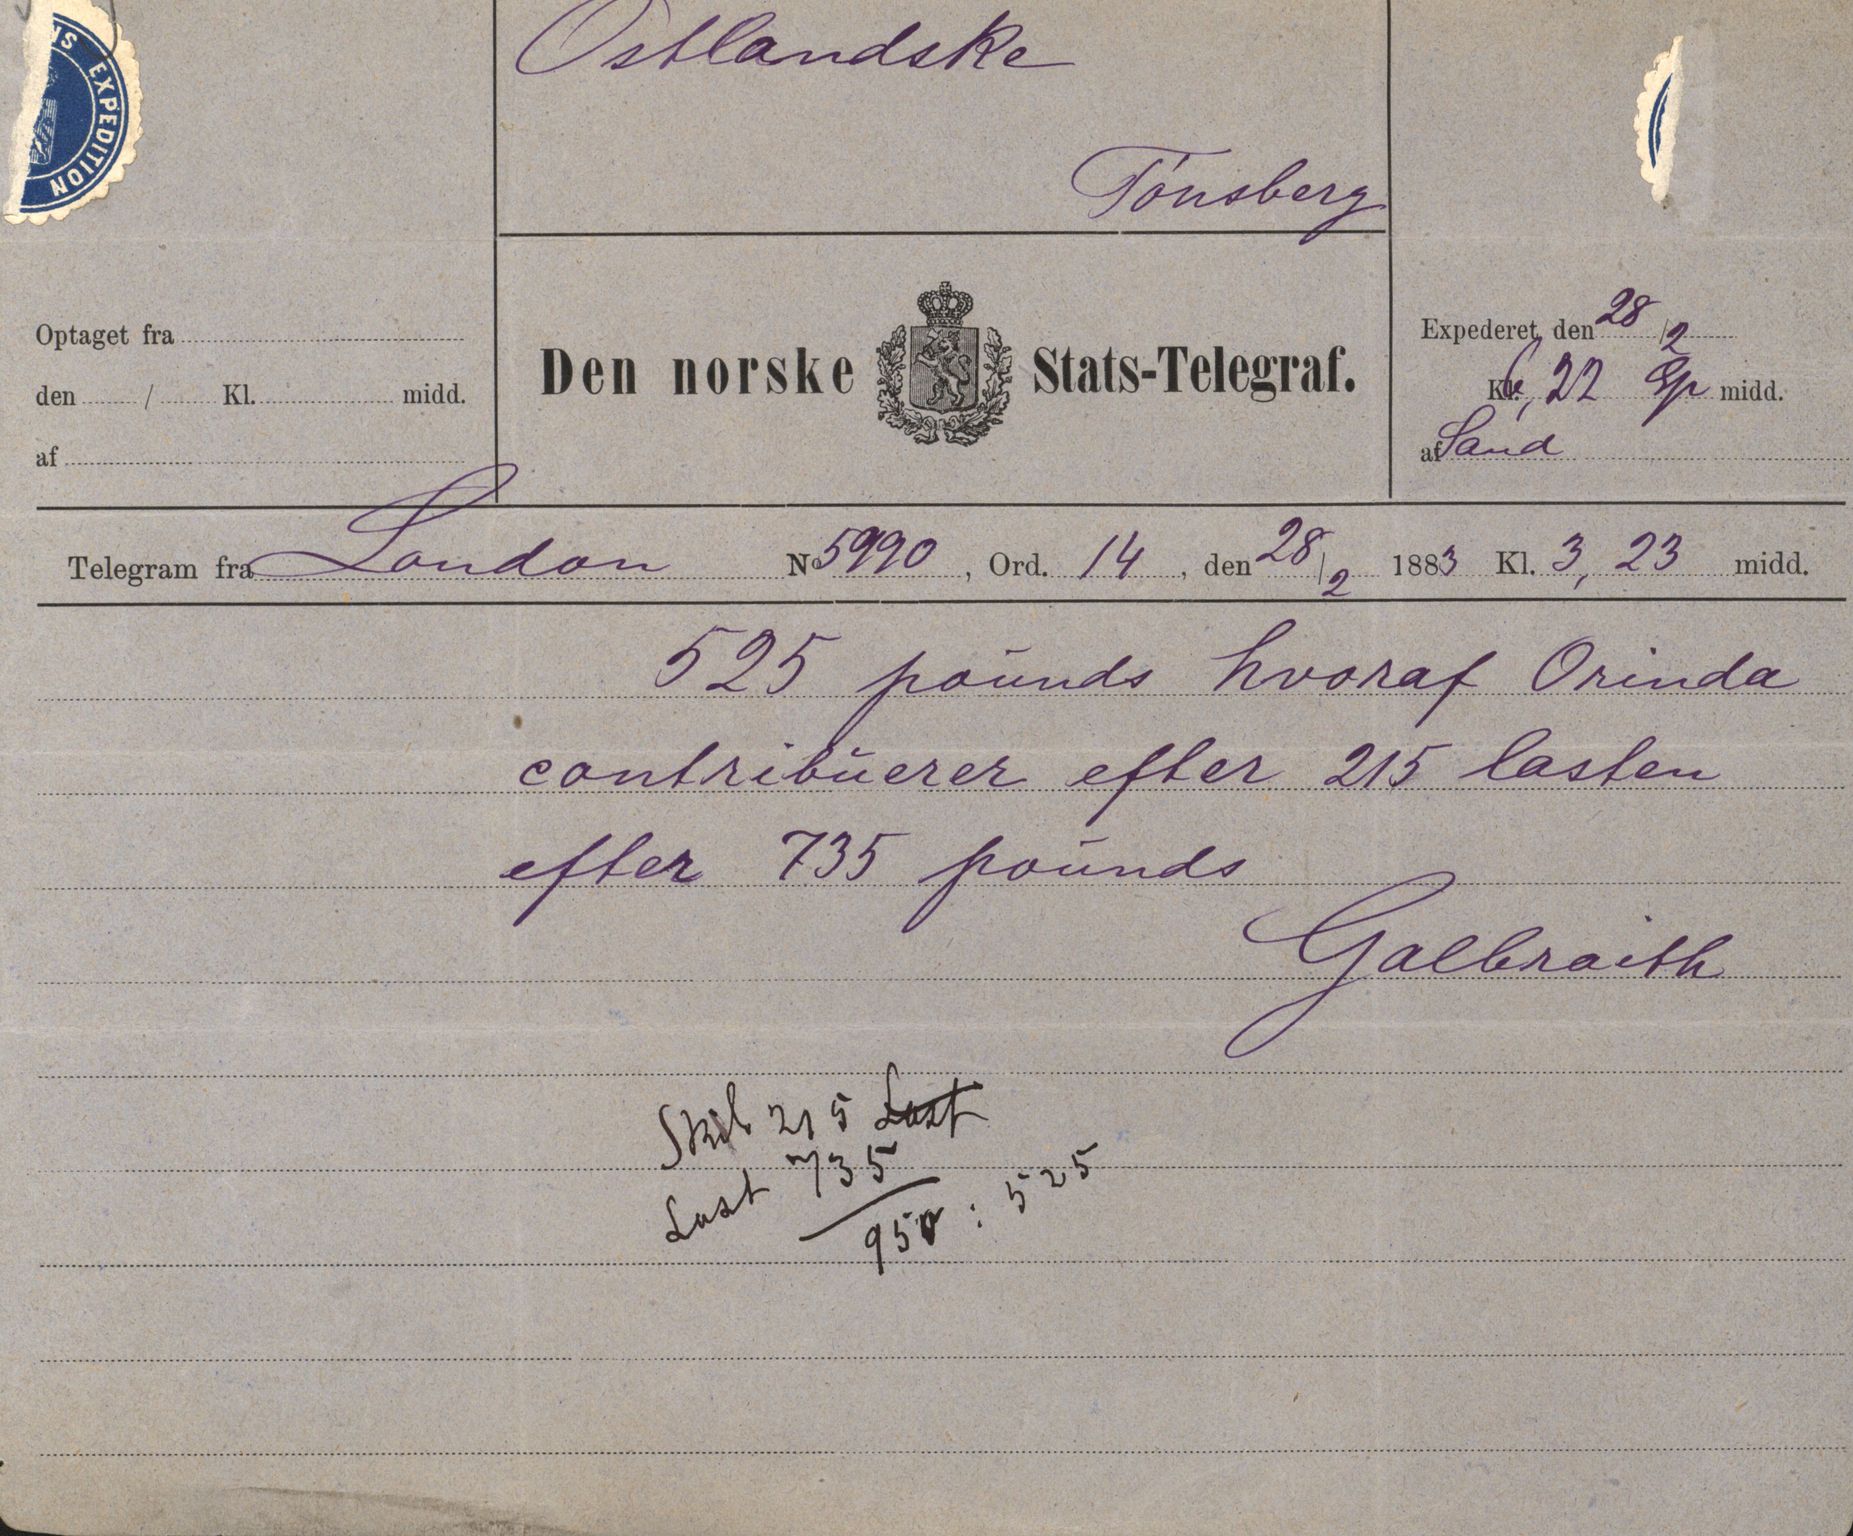 NS EXPEDITION
Ostlandske
Tönsberg
Optaget fra
den / Kl. midd.
af
Den norske Stats-Telegraf.
Expederet den 28/2
Kl. 6,22 Ep midd.
af Sand
Telegram fra London No 5990, Ord. 14, den 28/2 1883 Kl. 3,23 midd.
525 pounds hvoraf Orinda
contribuerer efter 215 lasten
efter 735 pounds
Galbraith
Skib 215 Last
Last 735
950 : 525